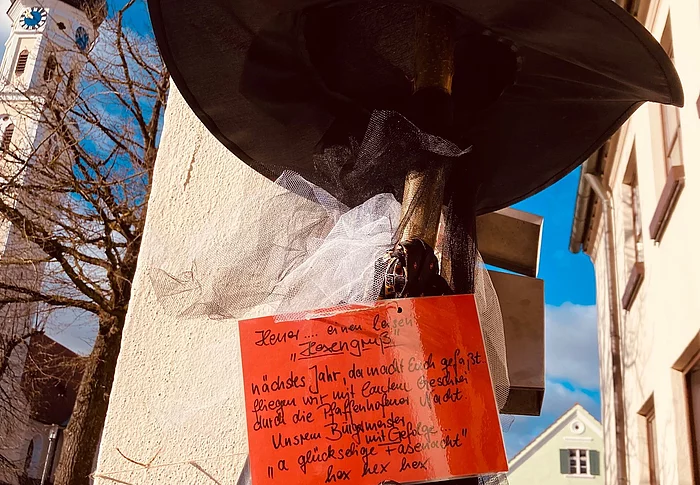 Heuer .... einen leisen
"Hexengruß"
nächstes Jahr, da macht Euch gefaßt
fliegen wir mit lautem Geschrei
durch die Pfaffenhofener Nacht
Unsrem Bürgermeister
mit Gefolge...
"a glückselige Fasenacht"
hex hex hex